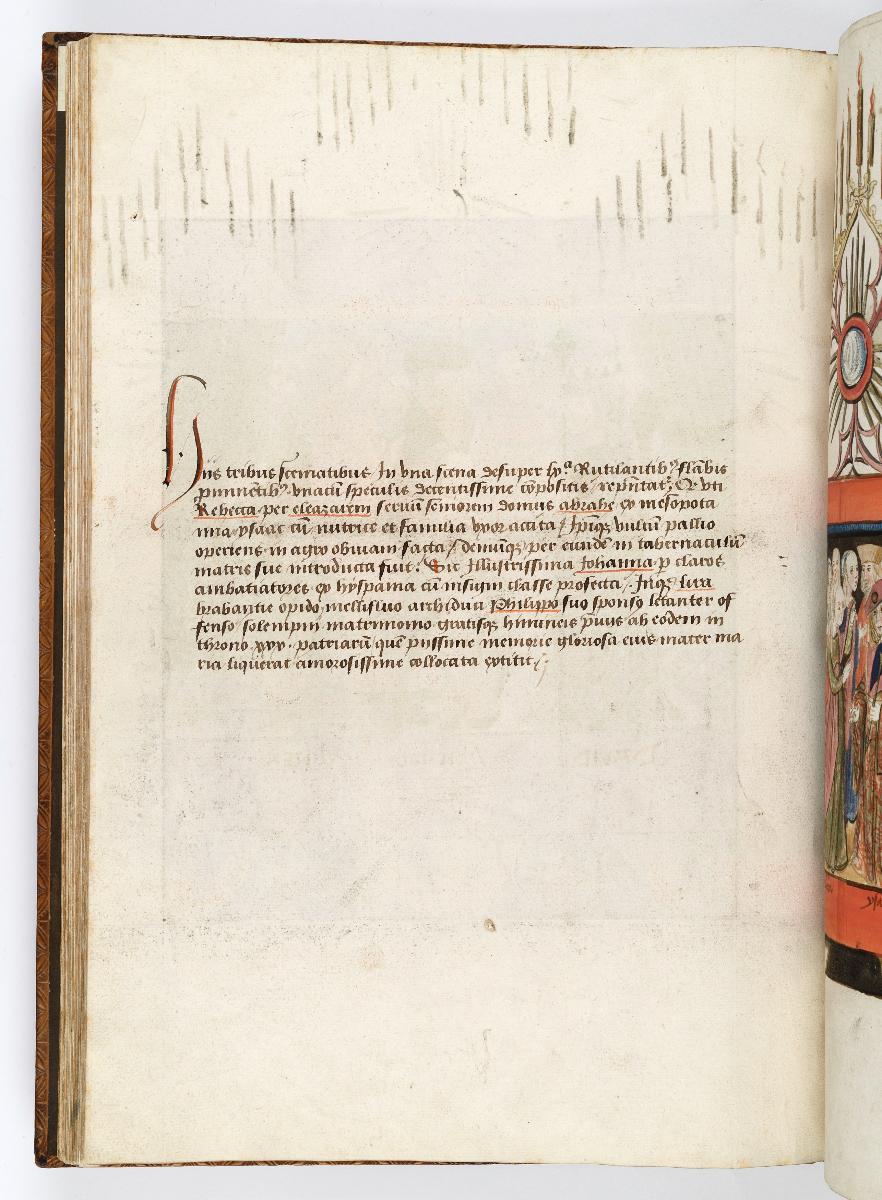 Hiis tribus scematibus In vna scena desuper hÿᵃ Rutilantibꝰ flābis
ꝑminētibꝰ vnacū speculis decentissime cōpositis / rep̄ntatꝫ Qᵈ vti
Rebecca per eleazarem seruū seniorem domus abrahe ex mesopota
mia ysaac cū nutrice et familia vxor accita / Ip̄iqꝫ vultū pallio
operiens in agro obuiam facta / demūqꝫ per eundē in tabernaculū
matris sue introducta fuit: Sic Illustrissima Johanna ꝑ claros
ambaxiatores ex hyspania cū insigni classe profecta / Inqꝫ lira
brabantie opido mellifluo archiduci Philippo suo sponso letanter of
fenso solempni matrimonio gratisqꝫ himineis ꝑuijs ab eodem in
throno xvij patriarū quē pijssime memorie gloriosa eius mater ma
ria liquerat amorosissime collocata extitit /